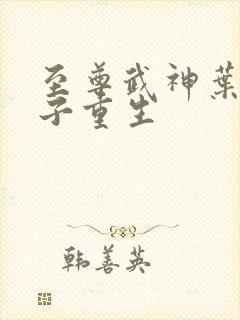 至尊武神葉
子重生
韩善英